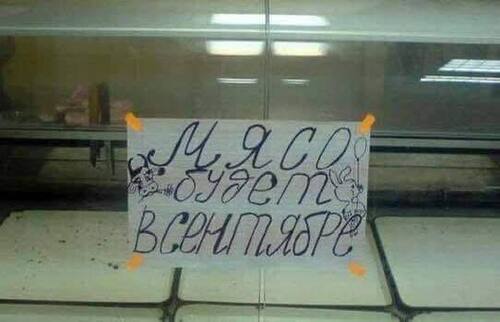 Мясо
будет
в сентябре